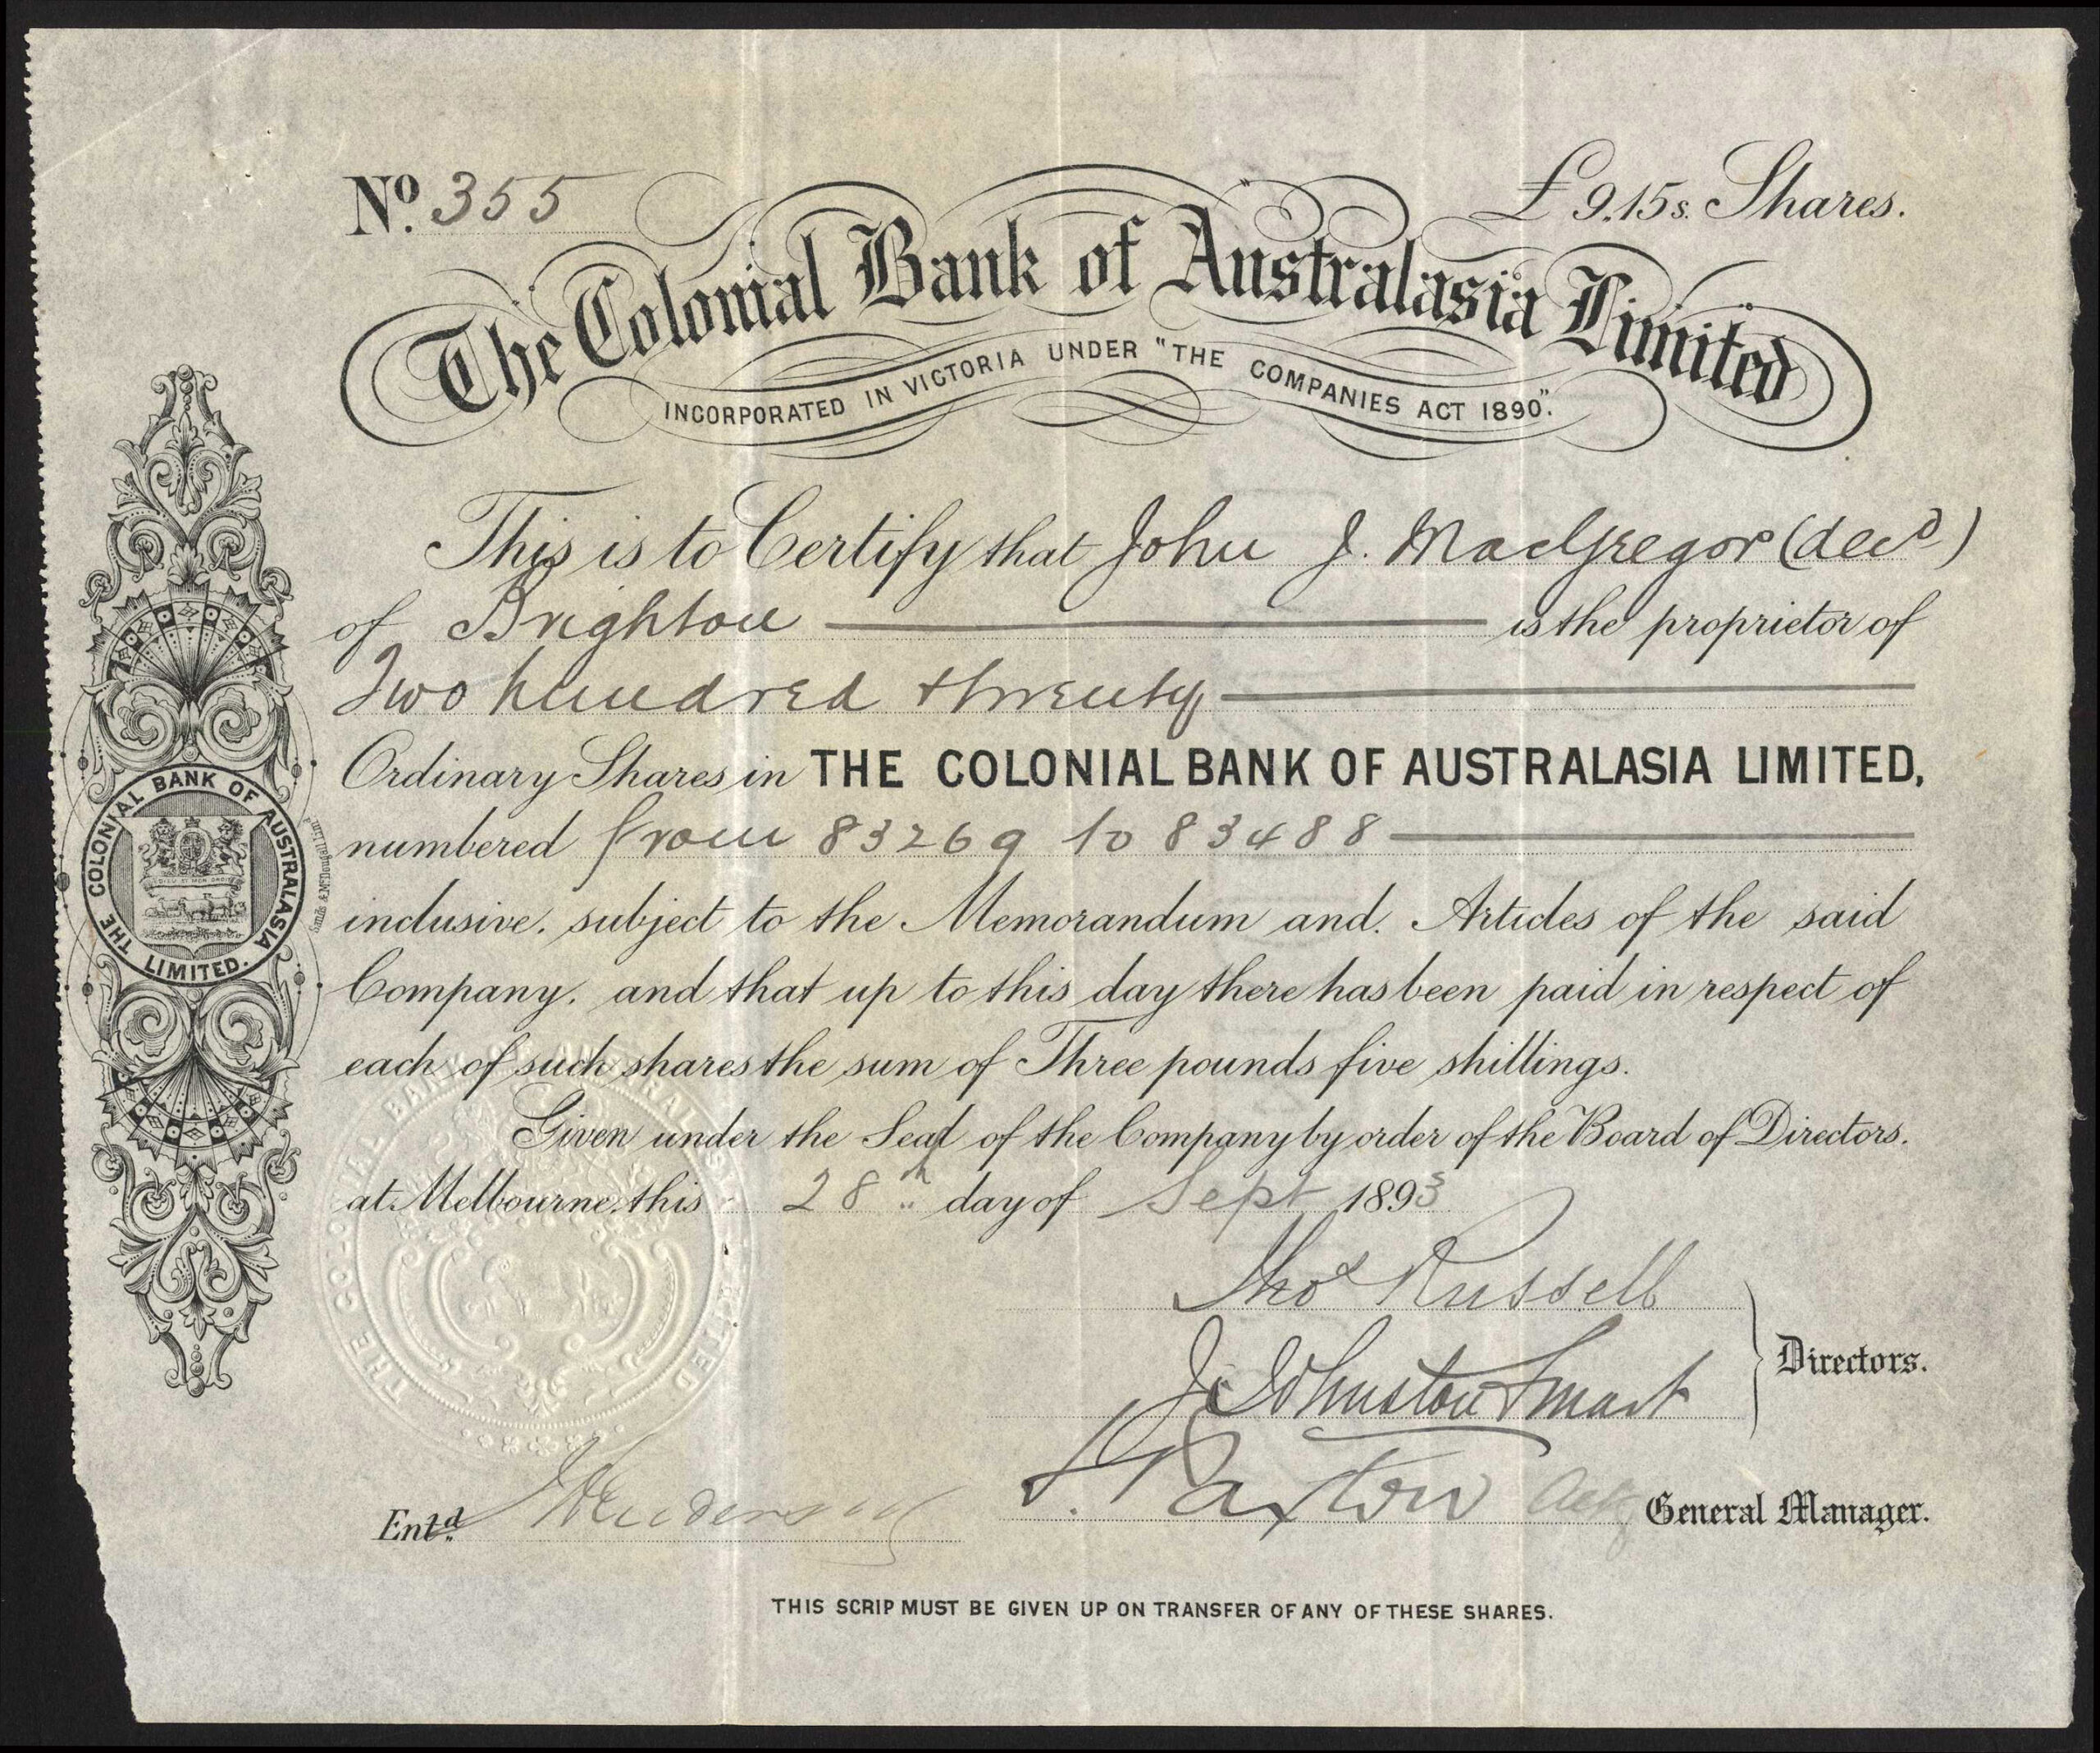 No. 355
£9.15s. Shares.
The Colonial Bank of Australasia Limited
INCORPORATED IN VICTORIA UNDER "THE COMPANIES ACT 1890".
This is to Certify that John J. MacGregor (decd)
of Brighton is the proprietor of
Two hundred twenty
Ordinary Shares in THE COLONIAL BANK OF AUSTRALASIA LIMITED,
numbered from 83269 to 83488
inclusive. subject to the Memorandum and. Articles of the said
Company. and that up to this day there has been paid in respect of
each of such shares the sum of Three pounds five shillings.
Given under the Seal of the Company by order of the Board of Directors.
at Melbourne. this 28th day of Sept 1893
Thos Russell
J. Johnston Smart
Directors.
Paxton Actg General Manager.
Entd Henderson
THIS SCRIP MUST BE GIVEN UP ON TRANSFER OF ANY OF THESE SHARES.
THE COLONIAL BANK OF AUSTRALASIA LIMITED.
Sands & McDougall Limd
THE COLONIAL BANK OF AUSTRALASIA LIMITED